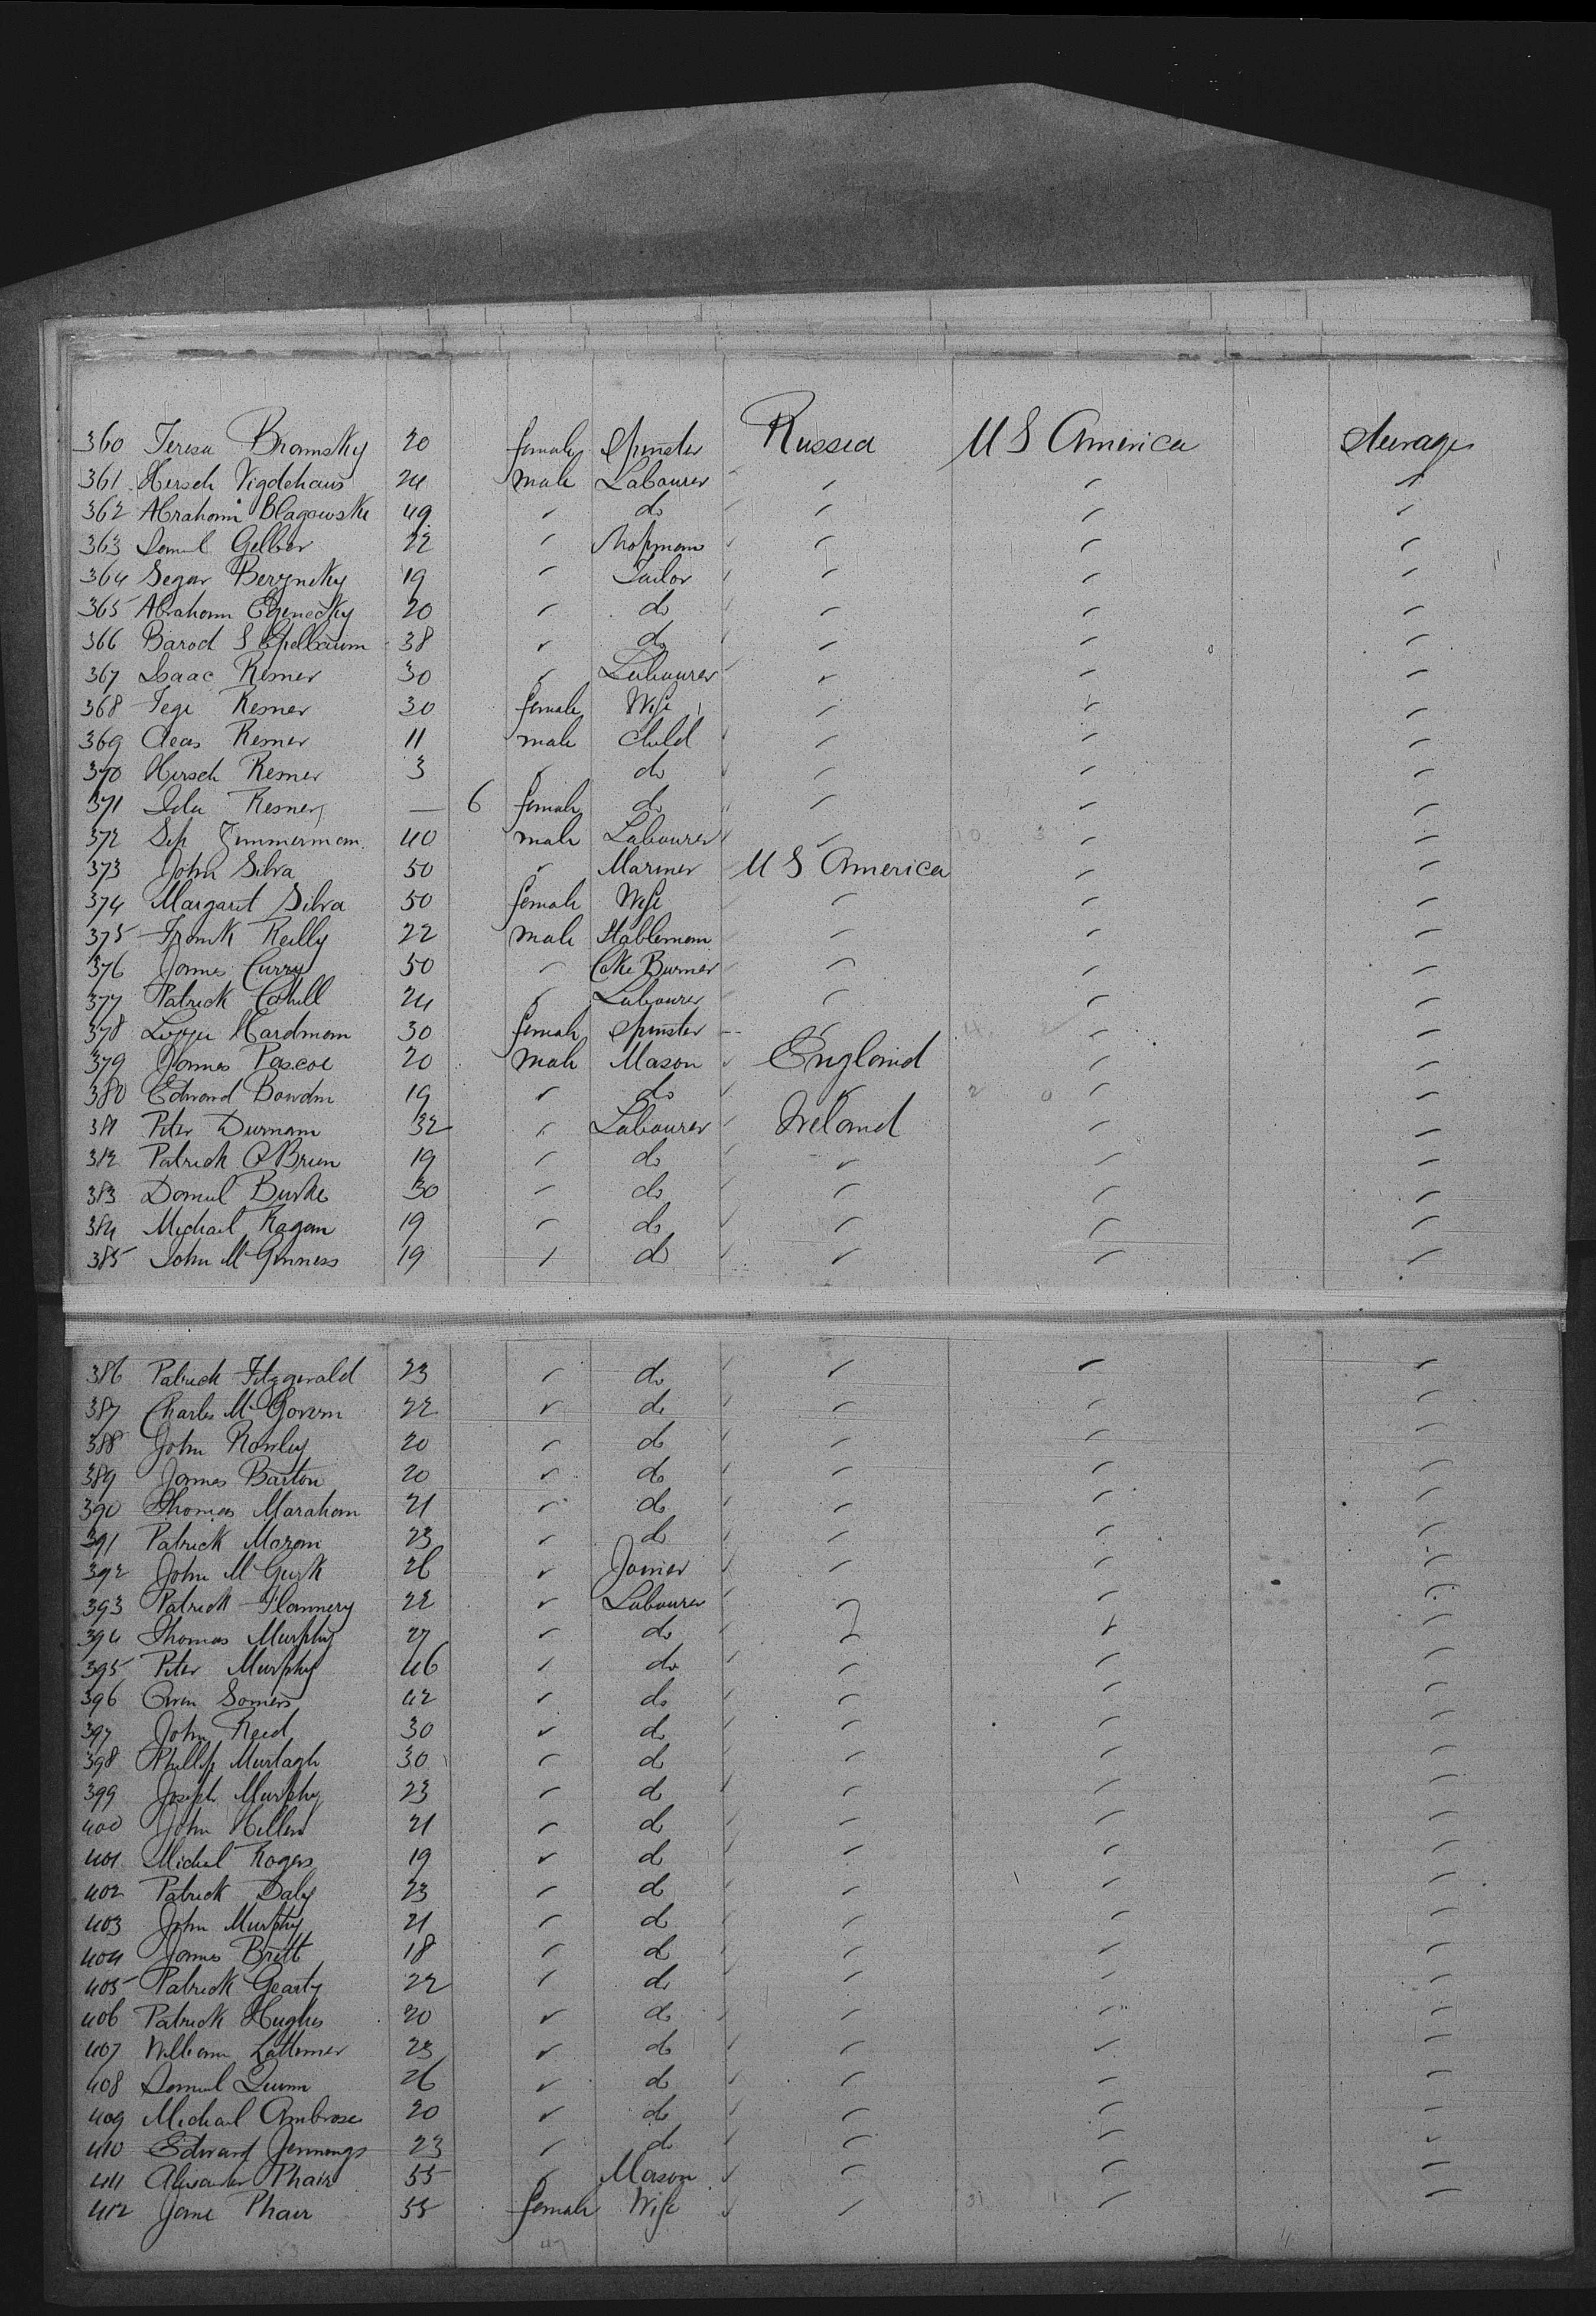 360 Teresa Bramsky 20 female Spinster Russia U S America Steerage
361 Hersch Vigdehaus 24 male Labourer " " "
362 Abraham Blagowski 49 " do " " "
363 Samul Gelber 22 " Shopman " " "
364 Segar Berzynsky 19 " Tailor " " "
365 Abraham 20 " do " " "
366 Baroch S Epelbaum 38 " do " " "
367 Isaac Resner 30 " Labourer " " "
368 Fege Resner 30 female Wife " " "
369 Cleas Resner 11 male Child " " "
370 Hersch Resner 3 " do " " "
371 Ida Resner — 6 female do " " "
372 Sep Zimmerman 40 male Labourer " " "
373 John Silva 50 " Mariner U S America " "
374 Margaret Silva 50 female Wife " " "
375 Frank Reilly 22 male Stableman " " "
376 James Curry 50 " Coke Burner " " "
377 Patrick Cahill 24 " Labourer " " "
378 Lizzie Hardman 30 female Spinster " " "
379 James Pascoe 20 male Mason England " "
380 Edward Bowden 19 " do " " "
381 Peter Durnam 32 " Labourer Ireland " "
382 Patrick O'Brien 19 " do " " "
383 Daniel Burke 30 " do " " "
384 Michael Kagan 19 " do " " "
385 John McGinness 19 " do " " "
386 Patrick Fitzgerald 23 " do " " "
387 Charles McGovern 22 " do " " "
388 John Rowley 20 " do " " "
389 James Barton 20 " do " " "
390 Thomas Marahan 21 " do " " "
391 Patrick Moran 23 " do " " "
392 John McGurk 26 " Joiner " " "
393 Patrick Flannery 22 " Labourer " " "
394 Thomas Murphy 27 " do " " "
395 Peter Murphy 46 " do " " "
396 Owen Somers 42 " do " " "
397 John Reid 30 " do " " "
398 Phillip Murtagh 30 " do " " "
399 Joseph Murphy 23 " do " " "
400 John Hillen 21 " do " " "
401 Michel Rogers 19 " do " " "
402 Patrick Daly 23 " do " " "
403 John Murphy 21 " do " " "
404 James Brett 18 " do " " "
405 Patrick Gearty 22 " do " " "
406 Patrick Hughes 20 " do " " "
407 William Lattimer 23 " do " " "
408 Daniel Quinn 26 " do " " "
409 Michael Ambrose 20 " do " " "
410 Edward Jennings 23 " do " " "
411 Alexander Phair 55 " Mason " " "
412 Jane Phair 55 female Wife " " "